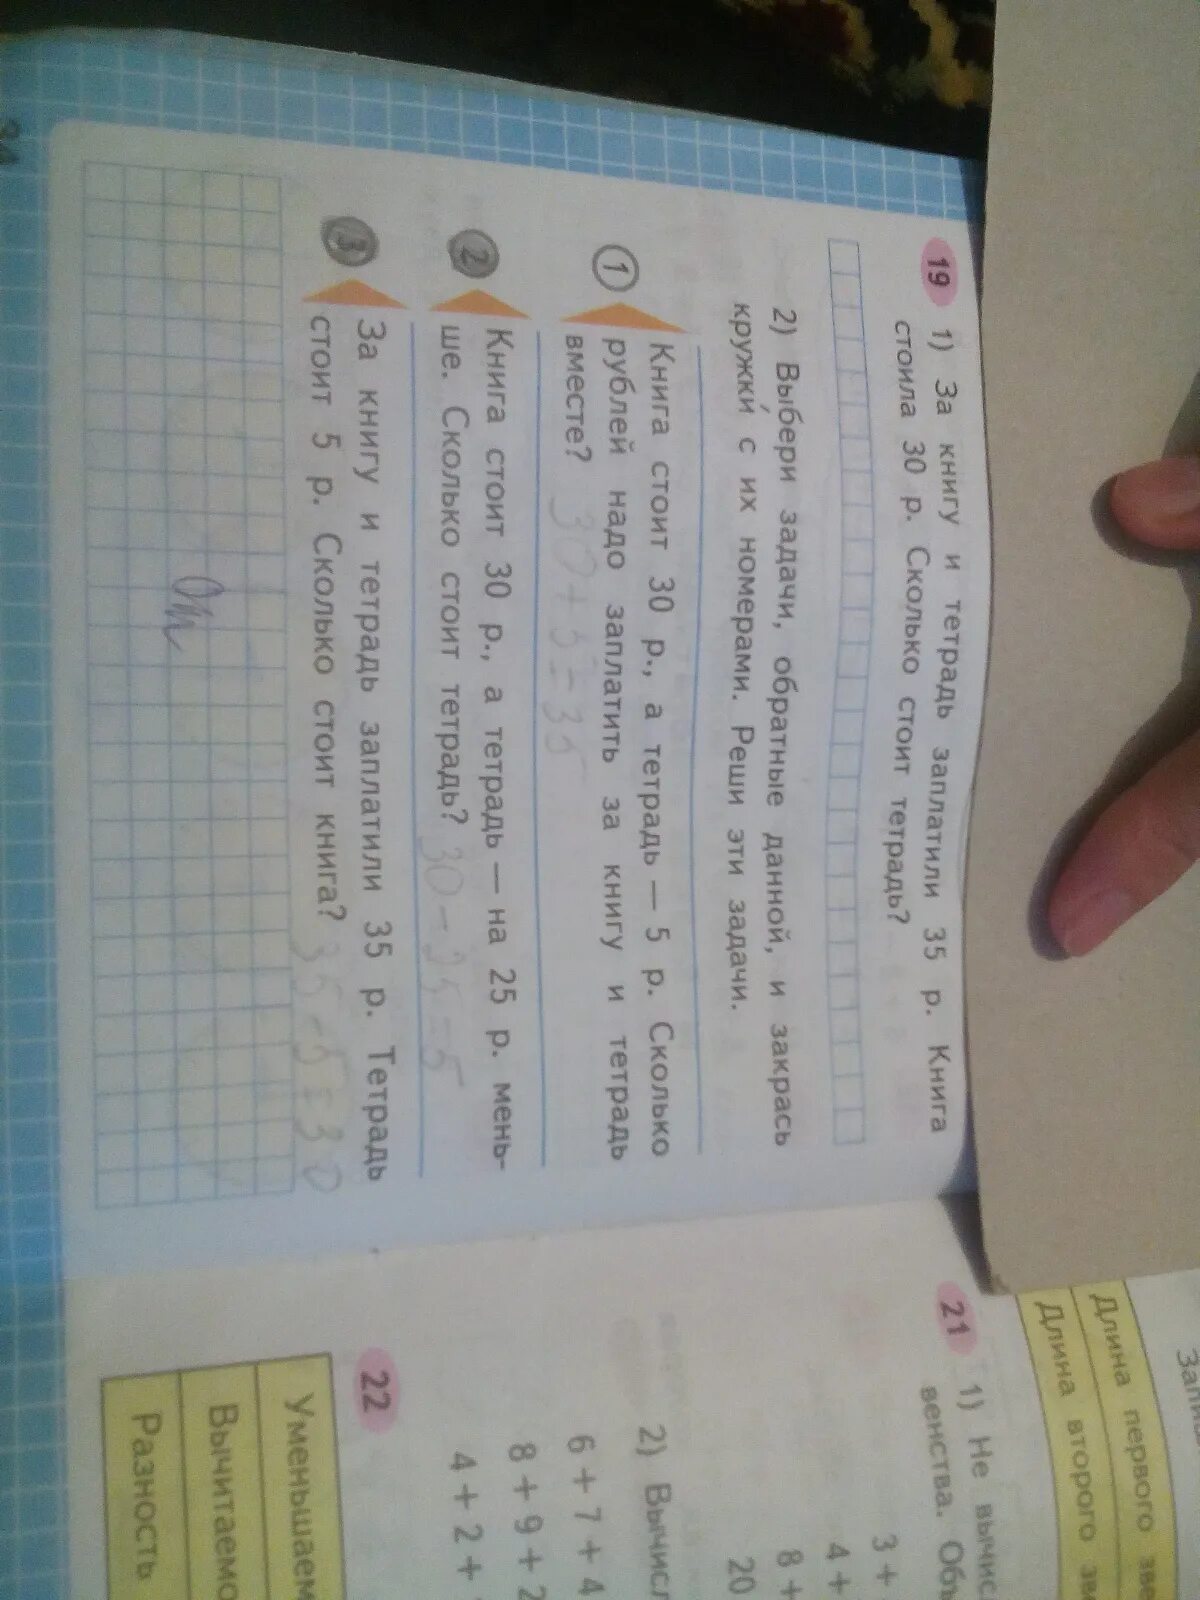 19 1) За книгу и тетрадь заплатили 35 р. Книга
стоила 30 р. Сколько стоит тетрадь?
2) Выбери задачи, обратные данной, и закрась
кружки с их номерами. Реши эти задачи.
1 Книга стоит 30 р., а тетрадь — 5 р. Сколько
рублей надо заплатить за книгу и тетрадь
вместе? 30+5=35
2 Книга стоит 30 р., а тетрадь — на 25 р. мень-
ше. Сколько стоит тетрадь? 30-25=5
3 За книгу и тетрадь заплатили 35 р. Тетрадь
стоит 5 р. Сколько стоит книга? 35-5=30
Длина первого зве
Длина второго зве
21 1) Не вычис
венства. Объ
3 +
4 +
8 +
20
2) Вычисл
6 + 7 + 4
8 + 9 + 2
4 + 2 +
22
Уменьшаем
Вычитаемо
Разность